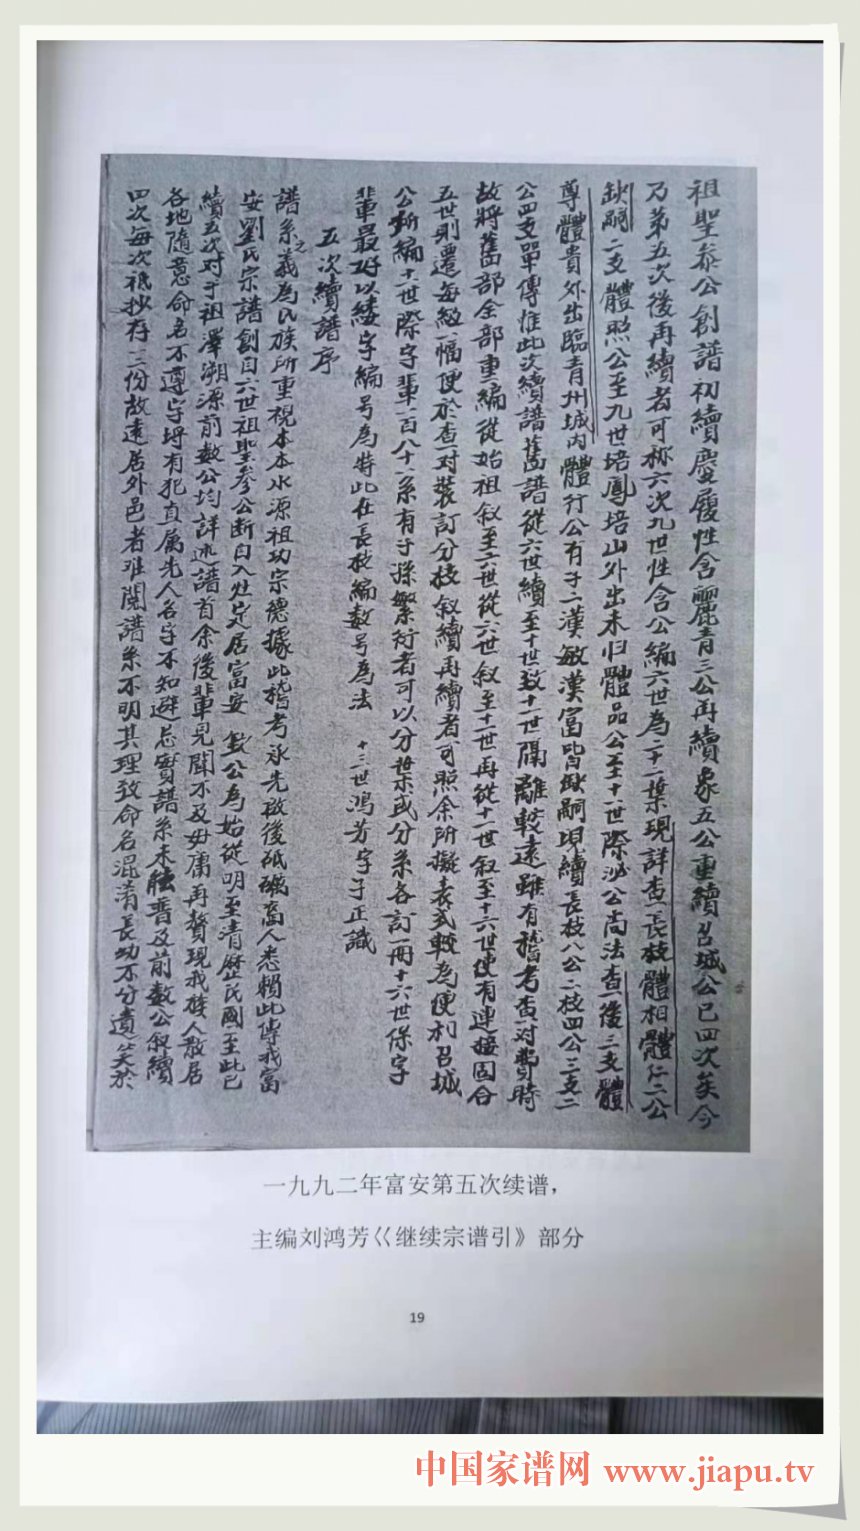 祖聖叅公創譜初續慶履性含麗青三公再續象五公重續呂城公已四次矣今
乃第五次後再續者可称六次九世性含公編六世為二十一葉現詳查長枝體相體仁二公
缺嗣二支體照公至九世培鳳培山外出未归體品公至十一世際泌公尚法查後三支體
尊體貴外出臨青州城内體行公有子二漢敏漢富皆缺嗣現續長枝八公二枝四公三支二
公四支單傳惟此次續譜舊譜從六世續至十世致十一世隔離較遠雖有稽考查對費時
故將舊部全部重編從始祖叙至六世從六世叙至十一世再從十一世叙至十六世便有連接固合
五世則遷每級一幅便於查對裝訂分枝叙續再續者可照余所擬表式較為便利呂城
公新編十一世際字輩一百八十一系有子孫繁衍者可以分世或分系各訂一冊十六世保字
輩最好以綫字編号為特此在長枝編数号為法 十三世鴻芳字子正識
五次續譜序
譜系之義為民族所重視本本水源祖功宗德據此稽考承先啟後砥礪商人悉賴此傳我富
安劉氏宗譜創自六世祖聖參公断自入灶定居富安 公為始從明至清歷民國至此已
續五次对于祖澤溯源前数公均詳述譜首余後輩見聞不及毋庸再贅現我族人散居
各地隨意命名不遵字埒有犯直属先人名字不知避忌實譜系未能普及前数公叙續
四次每次祗抄存三份故遠居外邑者难閱譜系不明其理致命名混淆長幼不分遺笑於
一九九二年富安第五次续谱，
主编刘鸿芳《继续宗谱引》部分
19
中国家谱网 www.jiapu.tv